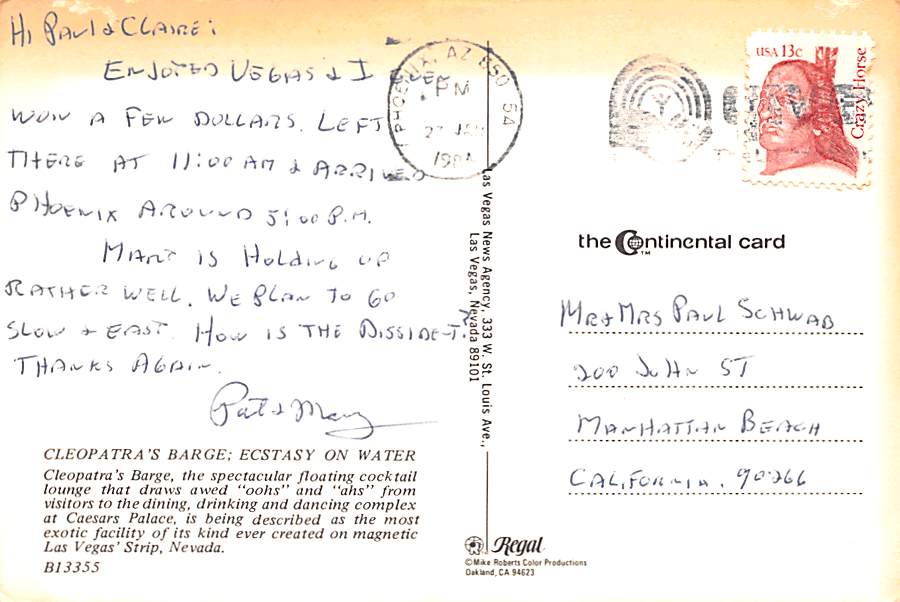 Hi Paul & Claire:
Enjoyed Vegas & I even
won a few dollars. Left
there at 11:00 AM & arrived
Phoenix around 5:00 P.M.
Mary is holding up
rather well. We plan to go
slow & easy. How is the Dissident?
Thanks again.
Pat & Mary
CLEOPATRA'S BARGE; ECSTASY ON WATER
Cleopatra's Barge, the spectacular floating cocktail
lounge that draws awed "oohs" and "ahs" from
visitors to the dining, drinking and dancing complex
at Caesars Palace, is being described as the most
exotic facility of its kind ever created on magnetic
Las Vegas' Strip, Nevada.
B13355
Las Vegas News Agency, 333 W. St. Louis Ave.,
Las Vegas, Nevada 89101
PHOENIX, AZ 850 54
PM
27 JAN
USA 13c
Crazy Horse
the Continental card
TM
Mr & Mrs Paul Schwab
200 John St
Manhattan Beach
California. 90266
Regal
©Mike Roberts Color Productions
Oakland, CA 94623